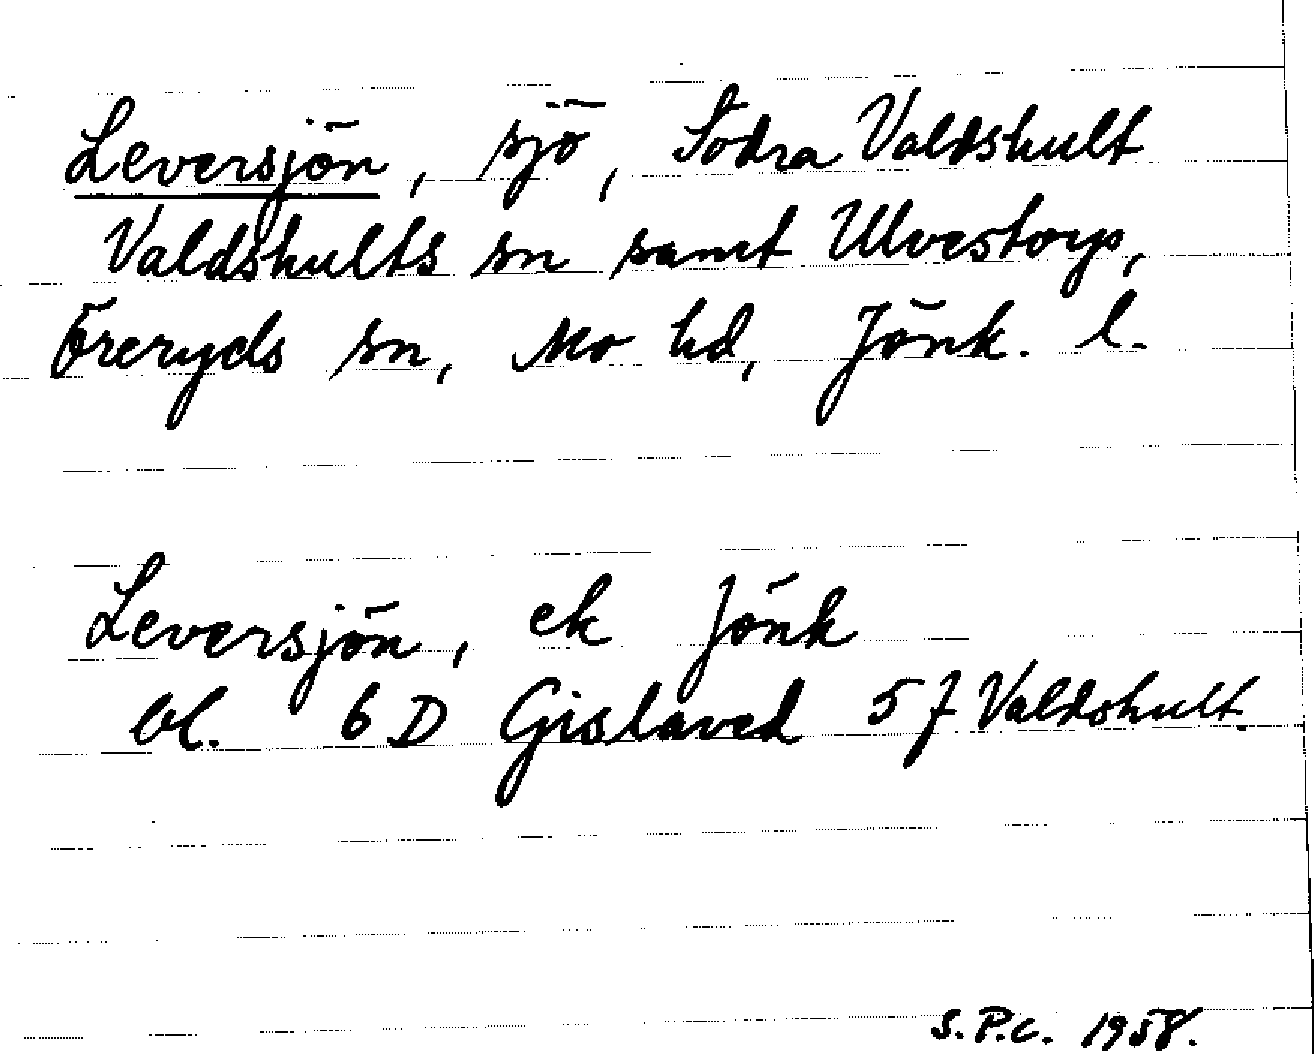 Leversjön, sjö, Södra Valdshult
Valdshults sn samt Ulvestorp,
Öreryds sn, Mo hd, Jönk. l.
Leversjön, ek Jönk
bl. 6 D Gislaved 5 f Valdshult.
S.P.C. 1958.